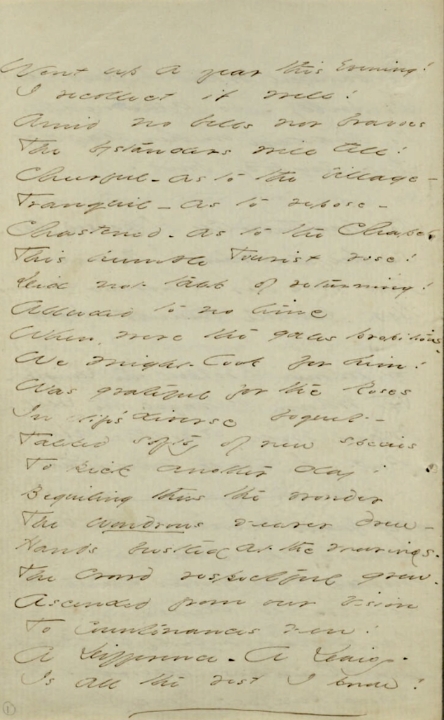 Went up a year this Evening!
I recollect it well!
Amid no bells nor bravoes
The bystanders will tell!
Cheerful - as to the village -
Tranquil - as to repose -
Chastened - as to the Chapel
This humble Tourist rose!
Did not talk of returning!
Alluded to no time
When, were the gales propitious
We might look for him!
Was grateful for the Roses
In life's diverse boquet -
Talked softly of new species
To pick another day;
Beguiling thus the wonder
The wondrous nearer drew -
Hands bustled at the moorings -
The crowd respectful grew -
Ascended from our vision
To Countenances new!
A Difference - A Daisy -
Is all the rest I knew!
1